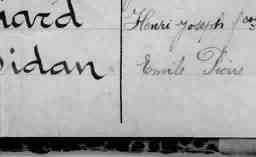 nard
Didan
Henri Joseph Jean
Emile Pierre